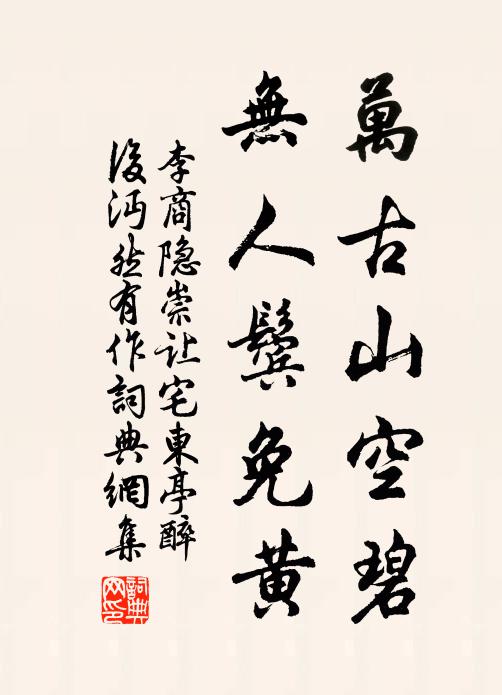 萬古山空碧
無人鬢免黃
李商隐崇让宅東亭醉
後沔然有作詞典網集
詞典
网印